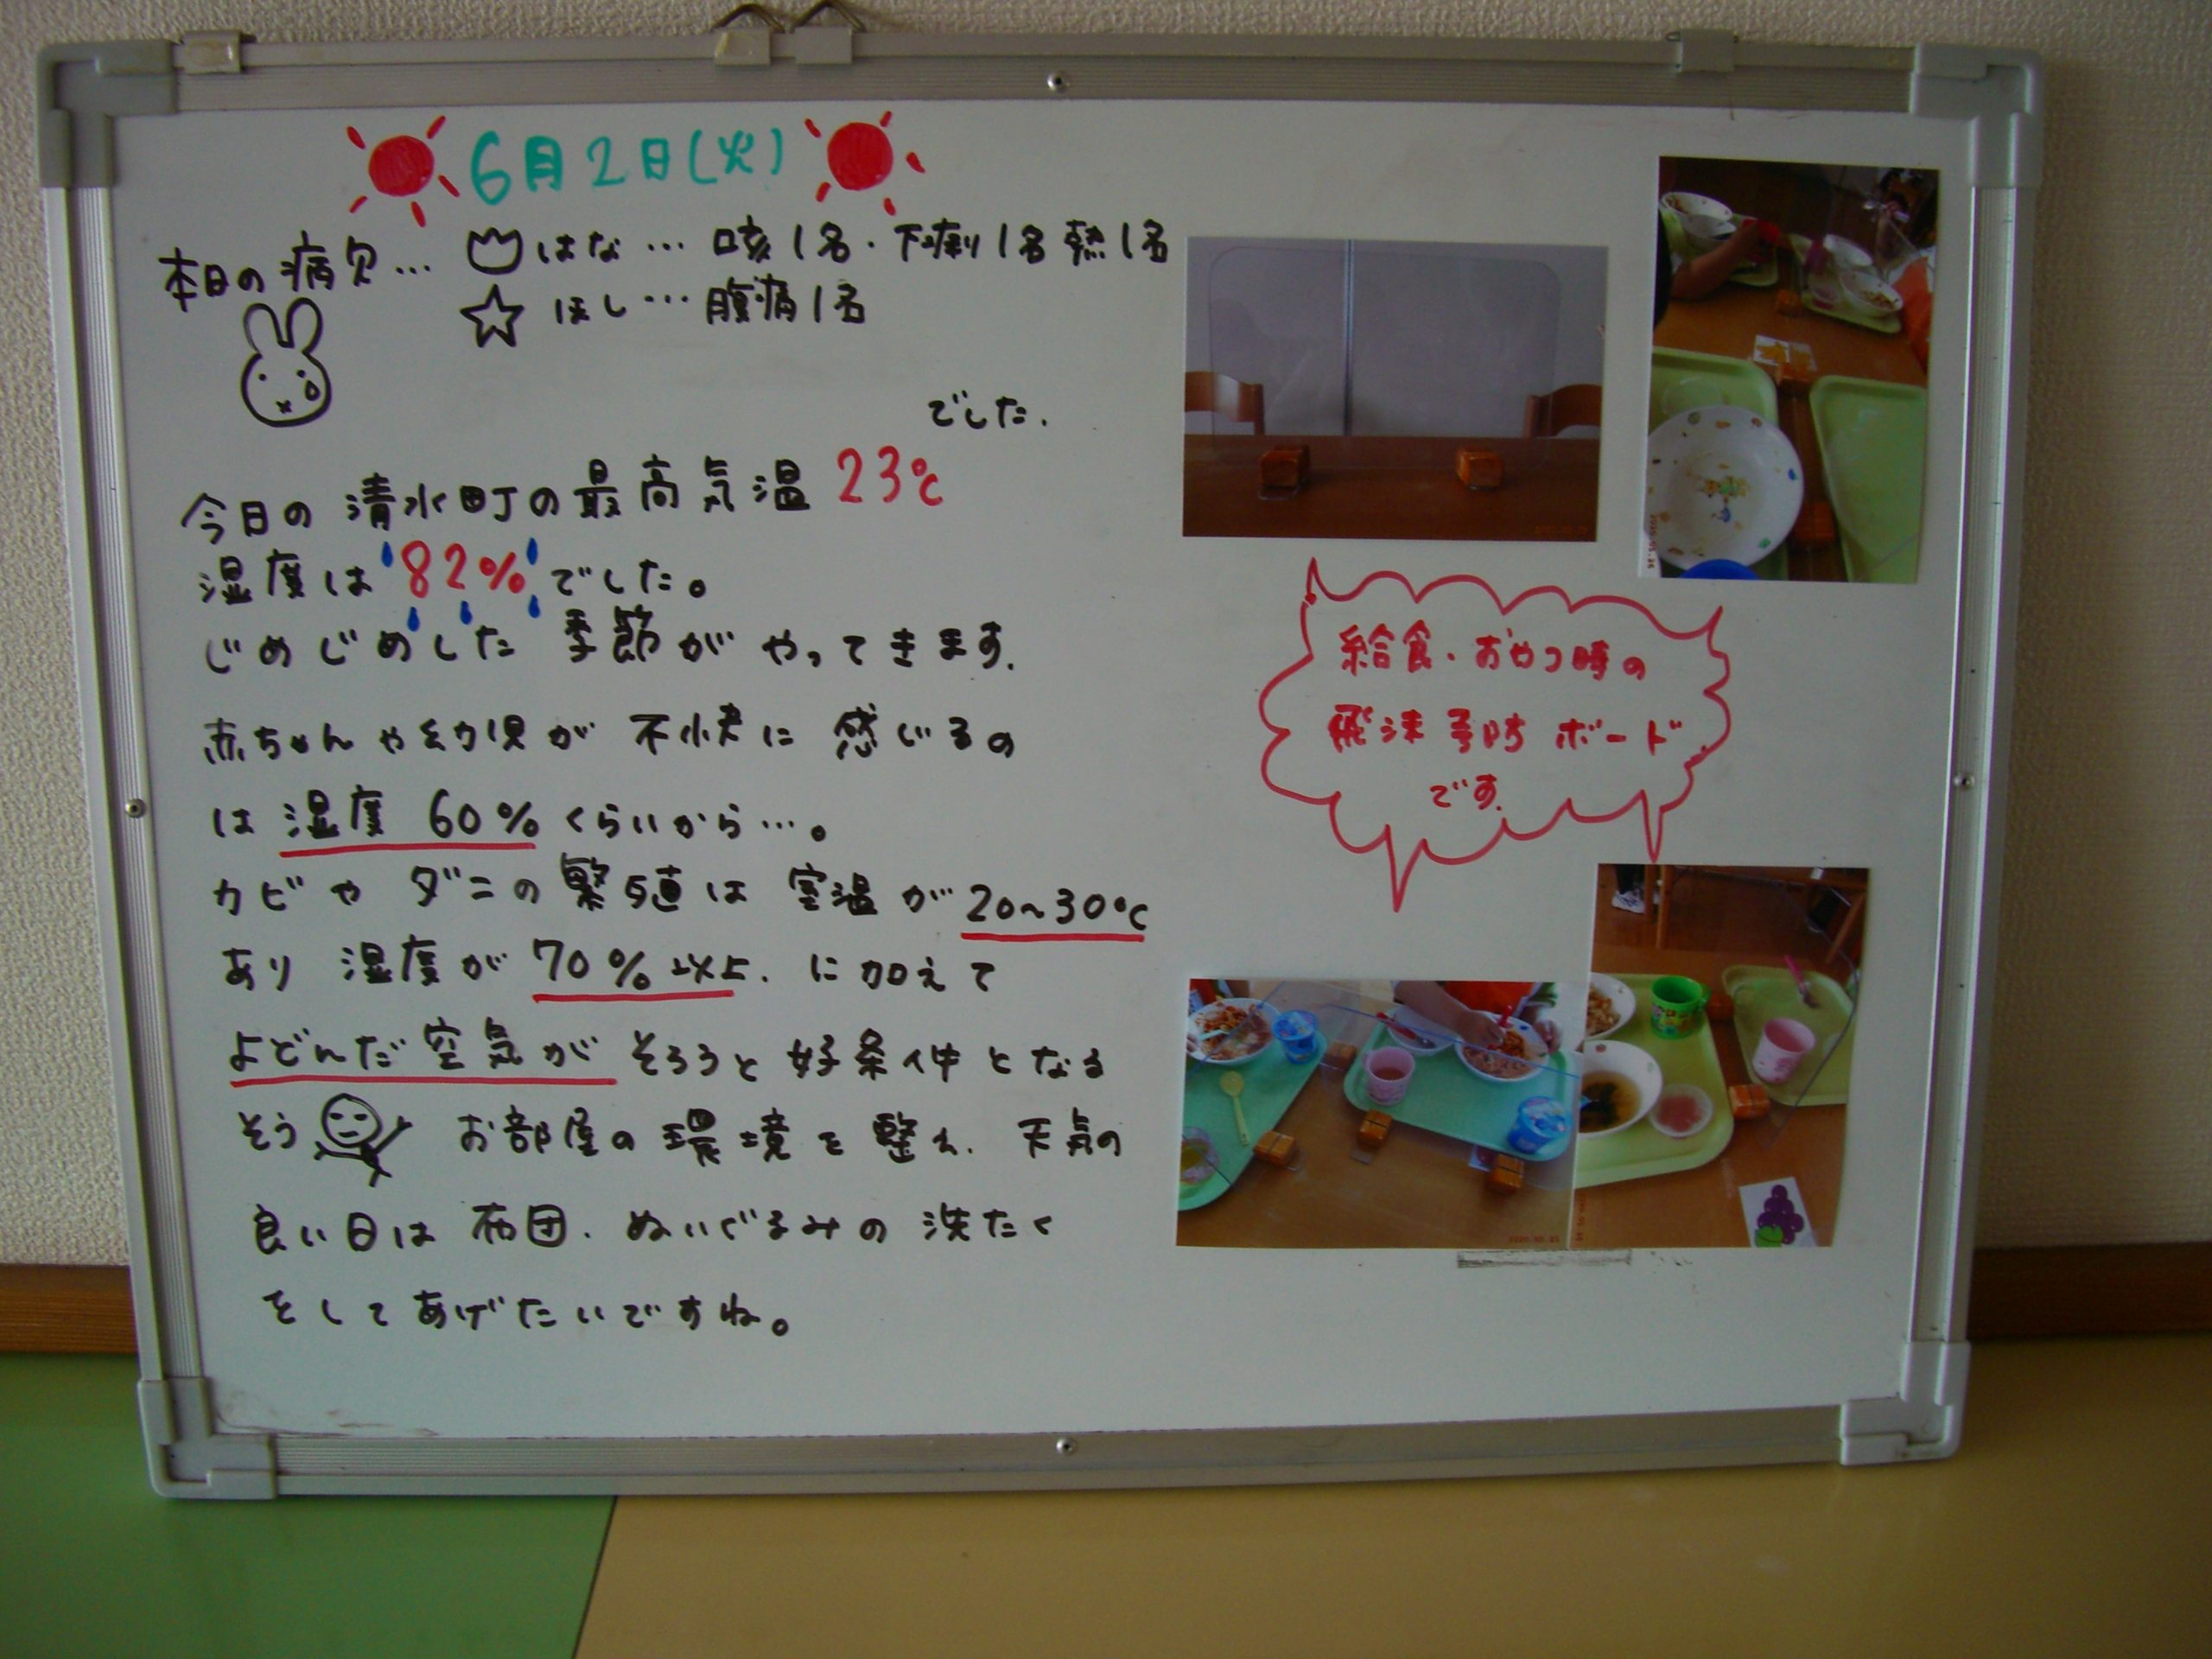 6月2日(火)
本日の病欠… はな…咳1名・下痢1名 熱1名
ほし…腹痛1名
でした.
今日の清水町の最高気温 23℃
湿度は 82% でした。
じめじめした 季節が やってきます.
赤ちゃんや幼児が 不快に 感じるの
は 湿度 60% くらいから…。
カビや ダニの 繁殖は 室温が 20~30℃
あり 湿度が 70%以上. に加えて
よどんだ空気が そろうと 好条件となる
そう お部屋の 環境を整え. 天気の
良い日は 布団. ぬいぐるみの 洗たく
をしてあげたいですね。
給食・おやつ時の
飛沫予防 ボード
です.